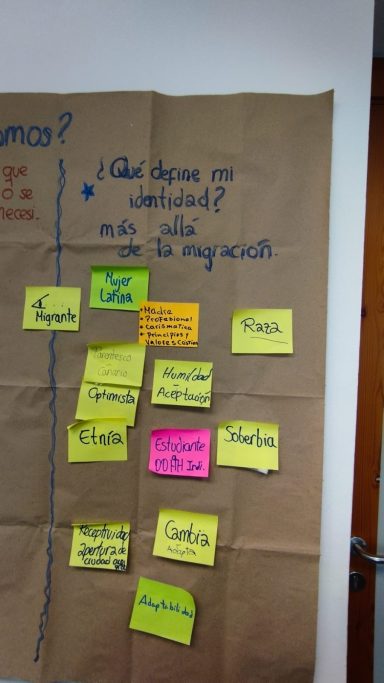 omos?
que
o se
necesi.
¿Qué define mi
identidad?
más allá
de la migración.
Migrante
Mujer
Latina
Madre
Profesional
Carismatica
Principios y
Valores
Raza
Parentesco
Canario
Optimista
Humildad
Aceptación
Etnía
Estudiante
DDHH Indi.
Soberbia
Receptividad
apertura de
ciudad
Cambia
Adapta
Adaptabilidad